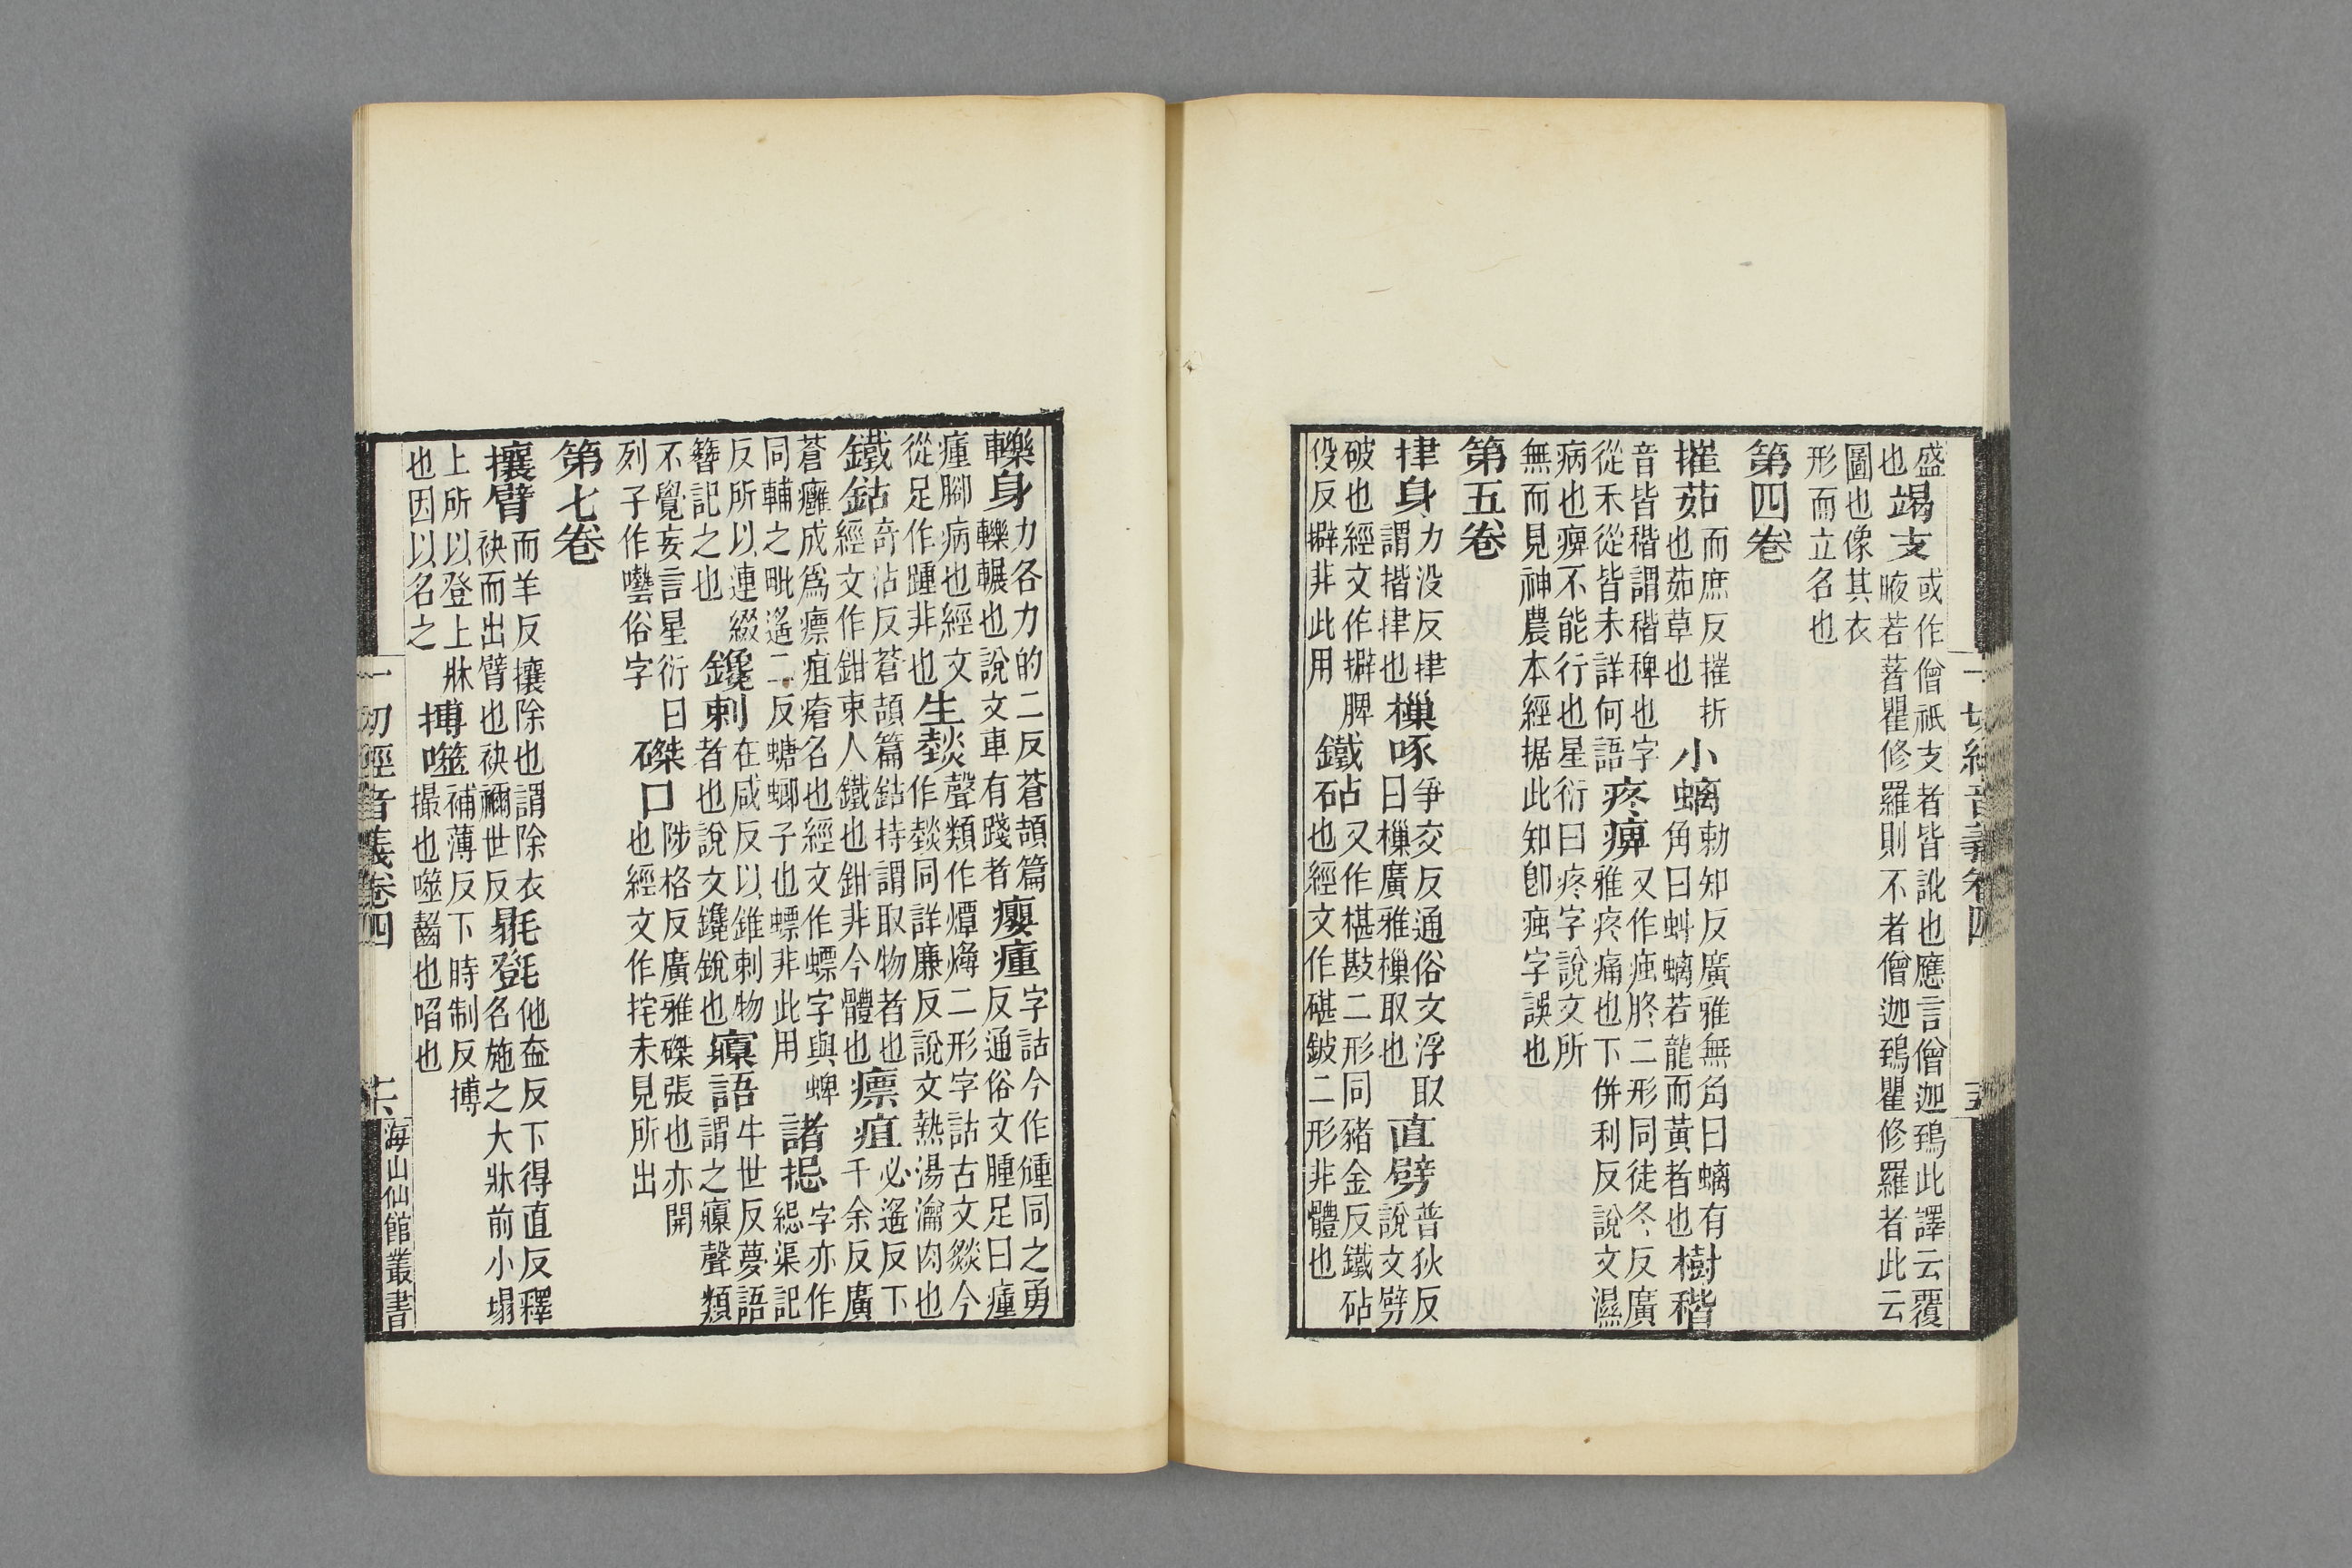 盛
也
竭支
或作僧祇支者皆訛也應言僧迦鵄此譯云覆
腋若著瞿修羅則不者僧迦鵄瞿修羅者此云
圖也像其衣
形而立名也
第四卷
摧茹
而庶反摧折
也茹草也
小螭
勑知反廣雅無角曰螭有
角曰蚪螭若龍而黃者也
樹稭
音皆稭謂稭稗也字
從禾從皆未詳何語
疼痹
又作痋二形同徒冬反廣
雅疼痛也下併利反說文濕
病也痹不能行也星衍曰疼字說文所
無而見神農本經据此知卽痋字誤也
第五卷
身
力没反
謂揩也
樔啄
爭交反通俗文浮取
曰樔廣雅樔取也
直劈
普狄反
說文劈
破也經文作擗脾
役反擗非此用
鐵砧
又作椹㪜二形同豬金反鐵砧
也經文作碪鈹二形非體也
一切經音義卷四
十五
轢身
力各力的二反蒼頡篇
轢輾也說文車有踐者
瘿瘇
字詁今作㣫同之勇
反通俗文腫足曰瘇
瘇腳病也經文
從足作踵非也
生㷋
聲類作燂二形字詁古文燅今
作㷋同詳廉反說文熱湯瀹肉也
鐵鈷
奇沾反蒼頡篇鈷持謂取物者也
經文作鉗束人鐵也鉗非今體也
瘭疽
必遙反下
千余反廣
蒼癰成爲瘭疽瘡名也經文作螵字與蜱
同輔之毗遙二反螗螂子也螵非此用
諸
字亦作
渠記
反所以連綴
簪記之也
鑱刺
在咸反以錐刺物
者也說文鑱銳也
寱語
牛世反夢語
謂之寱聲類
不覺妄言星衍曰
列子作囈俗字
磔口
陟格反廣雅磔張也亦開
也經文作挓未見所出
第七卷
攘臂
而羊反攘除也謂除衣
袂而出臂也袂禰世反
毾㲪
他盍反下得直反釋
名施之大牀前小塌
上所以登上牀
也因以名之
搏噬
補薄反下時制反搏
撮也噬齧也啗也
一切經音義卷四
十六
海山仙館叢書